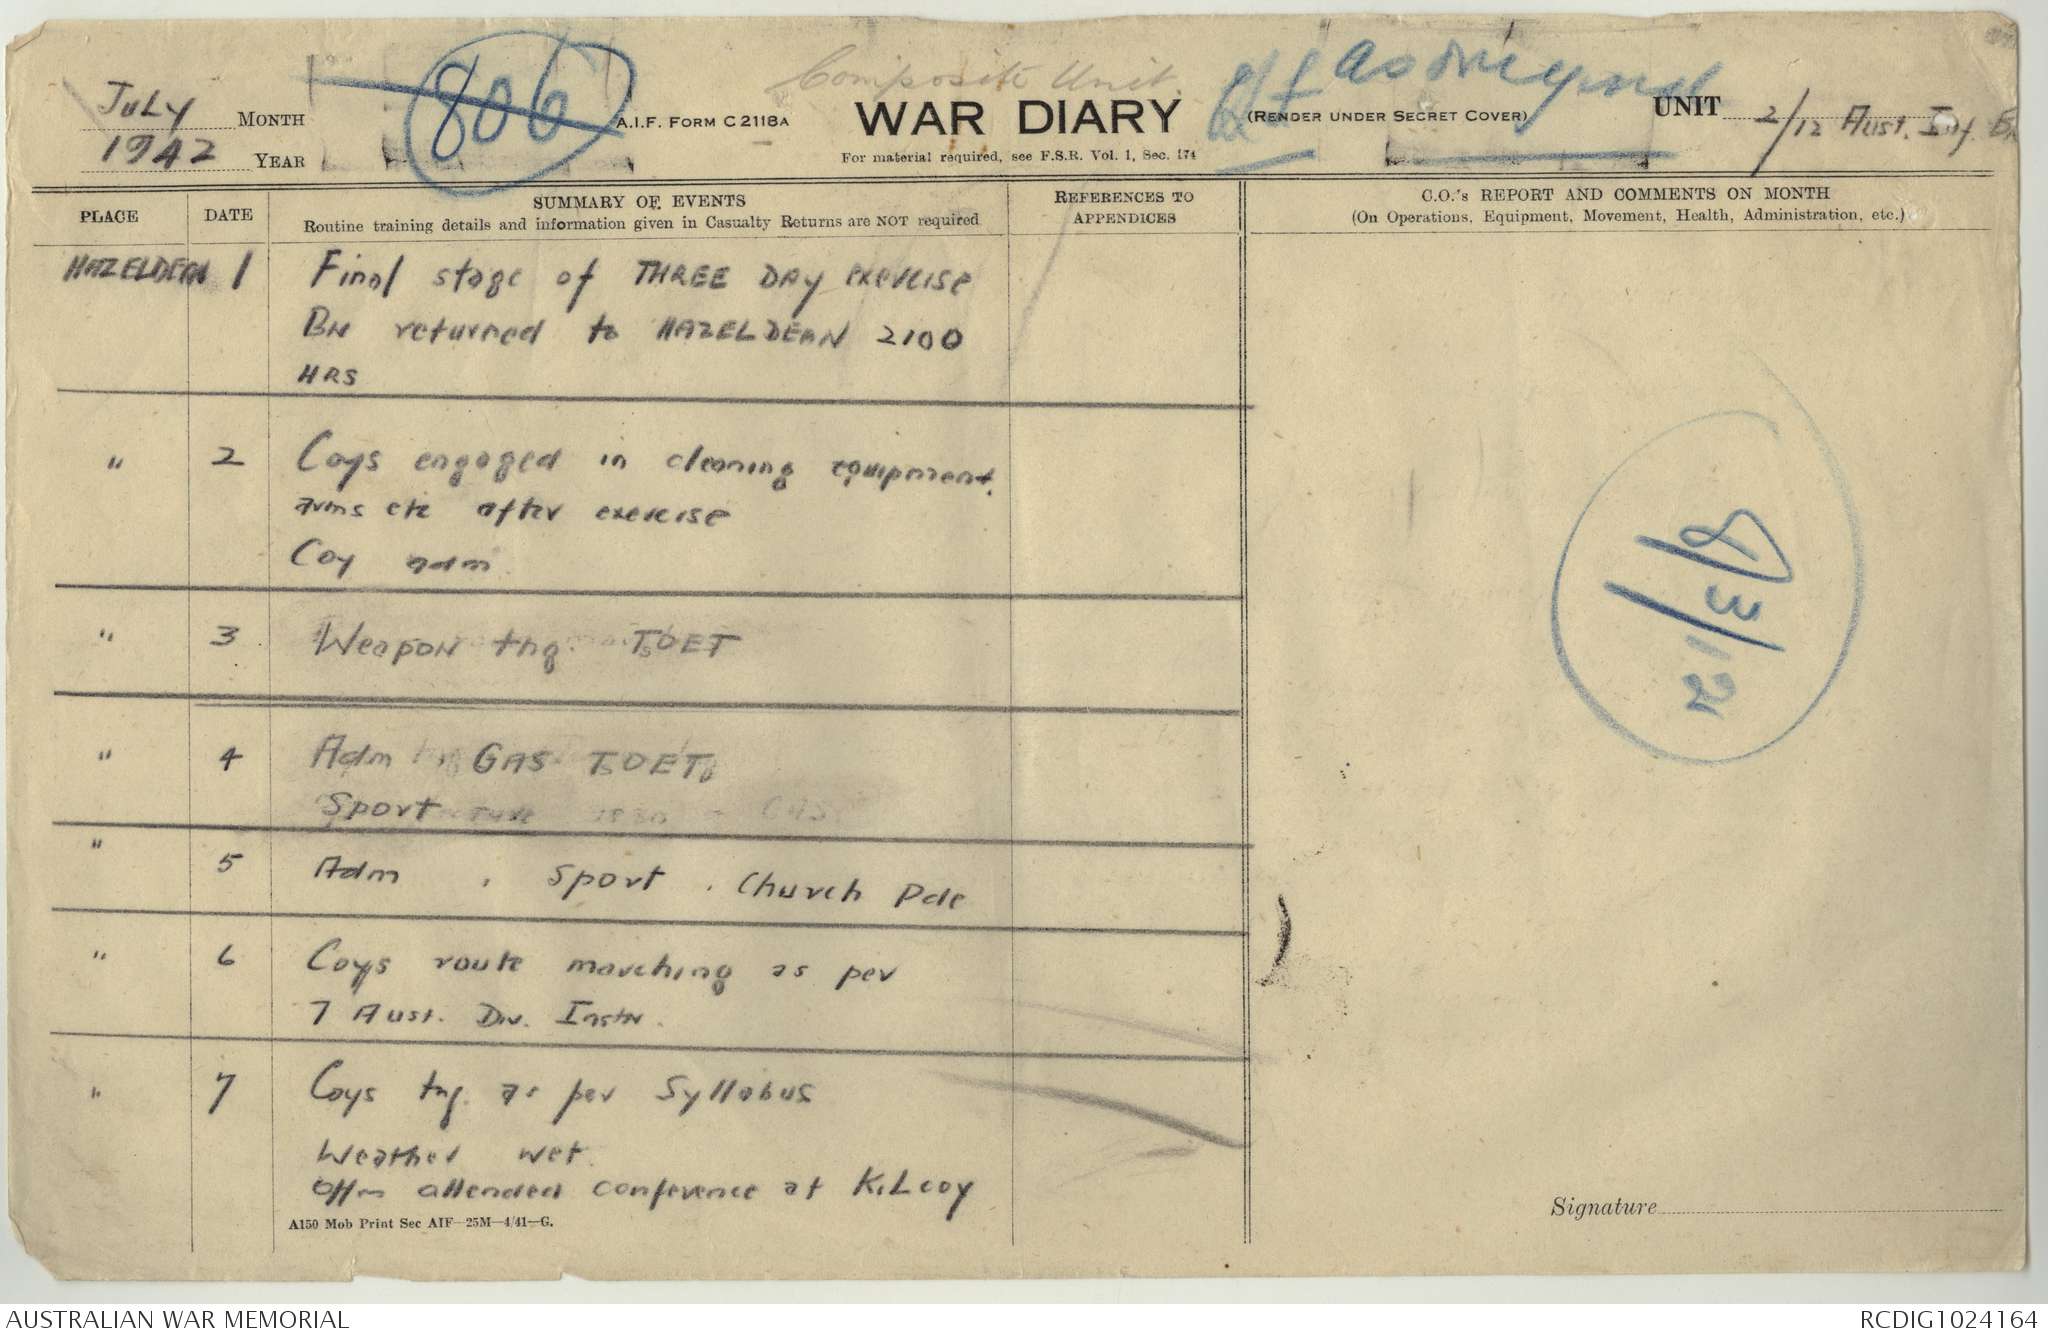 July MONTH
1942 YEAR
806
A.I.F. FORM C2118A
Composite Unit.
WAR DIARY
(RENDER UNDER SECRET COVER)
For material required, see F.S.R. Vol. 1, Sec. 174
UNIT 2/12 Aust. Inf. Bn
PLACE
DATE
SUMMARY OF EVENTS
Routine training details and information given in Casualty Returns are NOT required
REFERENCES TO
APPENDICES
C.O.'s REPORT AND COMMENTS ON MONTH
(On Operations, Equipment, Movement, Health, Administration, etc.)
HAZELDEAN 1 Final stage of THREE DAY exercise
BN returned to HAZELDEAN 2100
HRS
" 2 Coys engaged in cleaning equipment.
arms etc after exercise
Coy adm
" 3 Weapon tng. TsOET
" 4 Adm GAS TsOET
Sport
" 5 Adm . Sport . Church Pde
" 6 Coys route marching as per
7 Aust. Div. Instn.
" 7 Coys tng. as per Syllabus
Weather wet.
Offrs attended conference at KILCOY
8/3/12
Signature
A150 Mob Print Sec AIF—25M—4/41—G.
AUSTRALIAN WAR MEMORIAL
RCDIG1024164